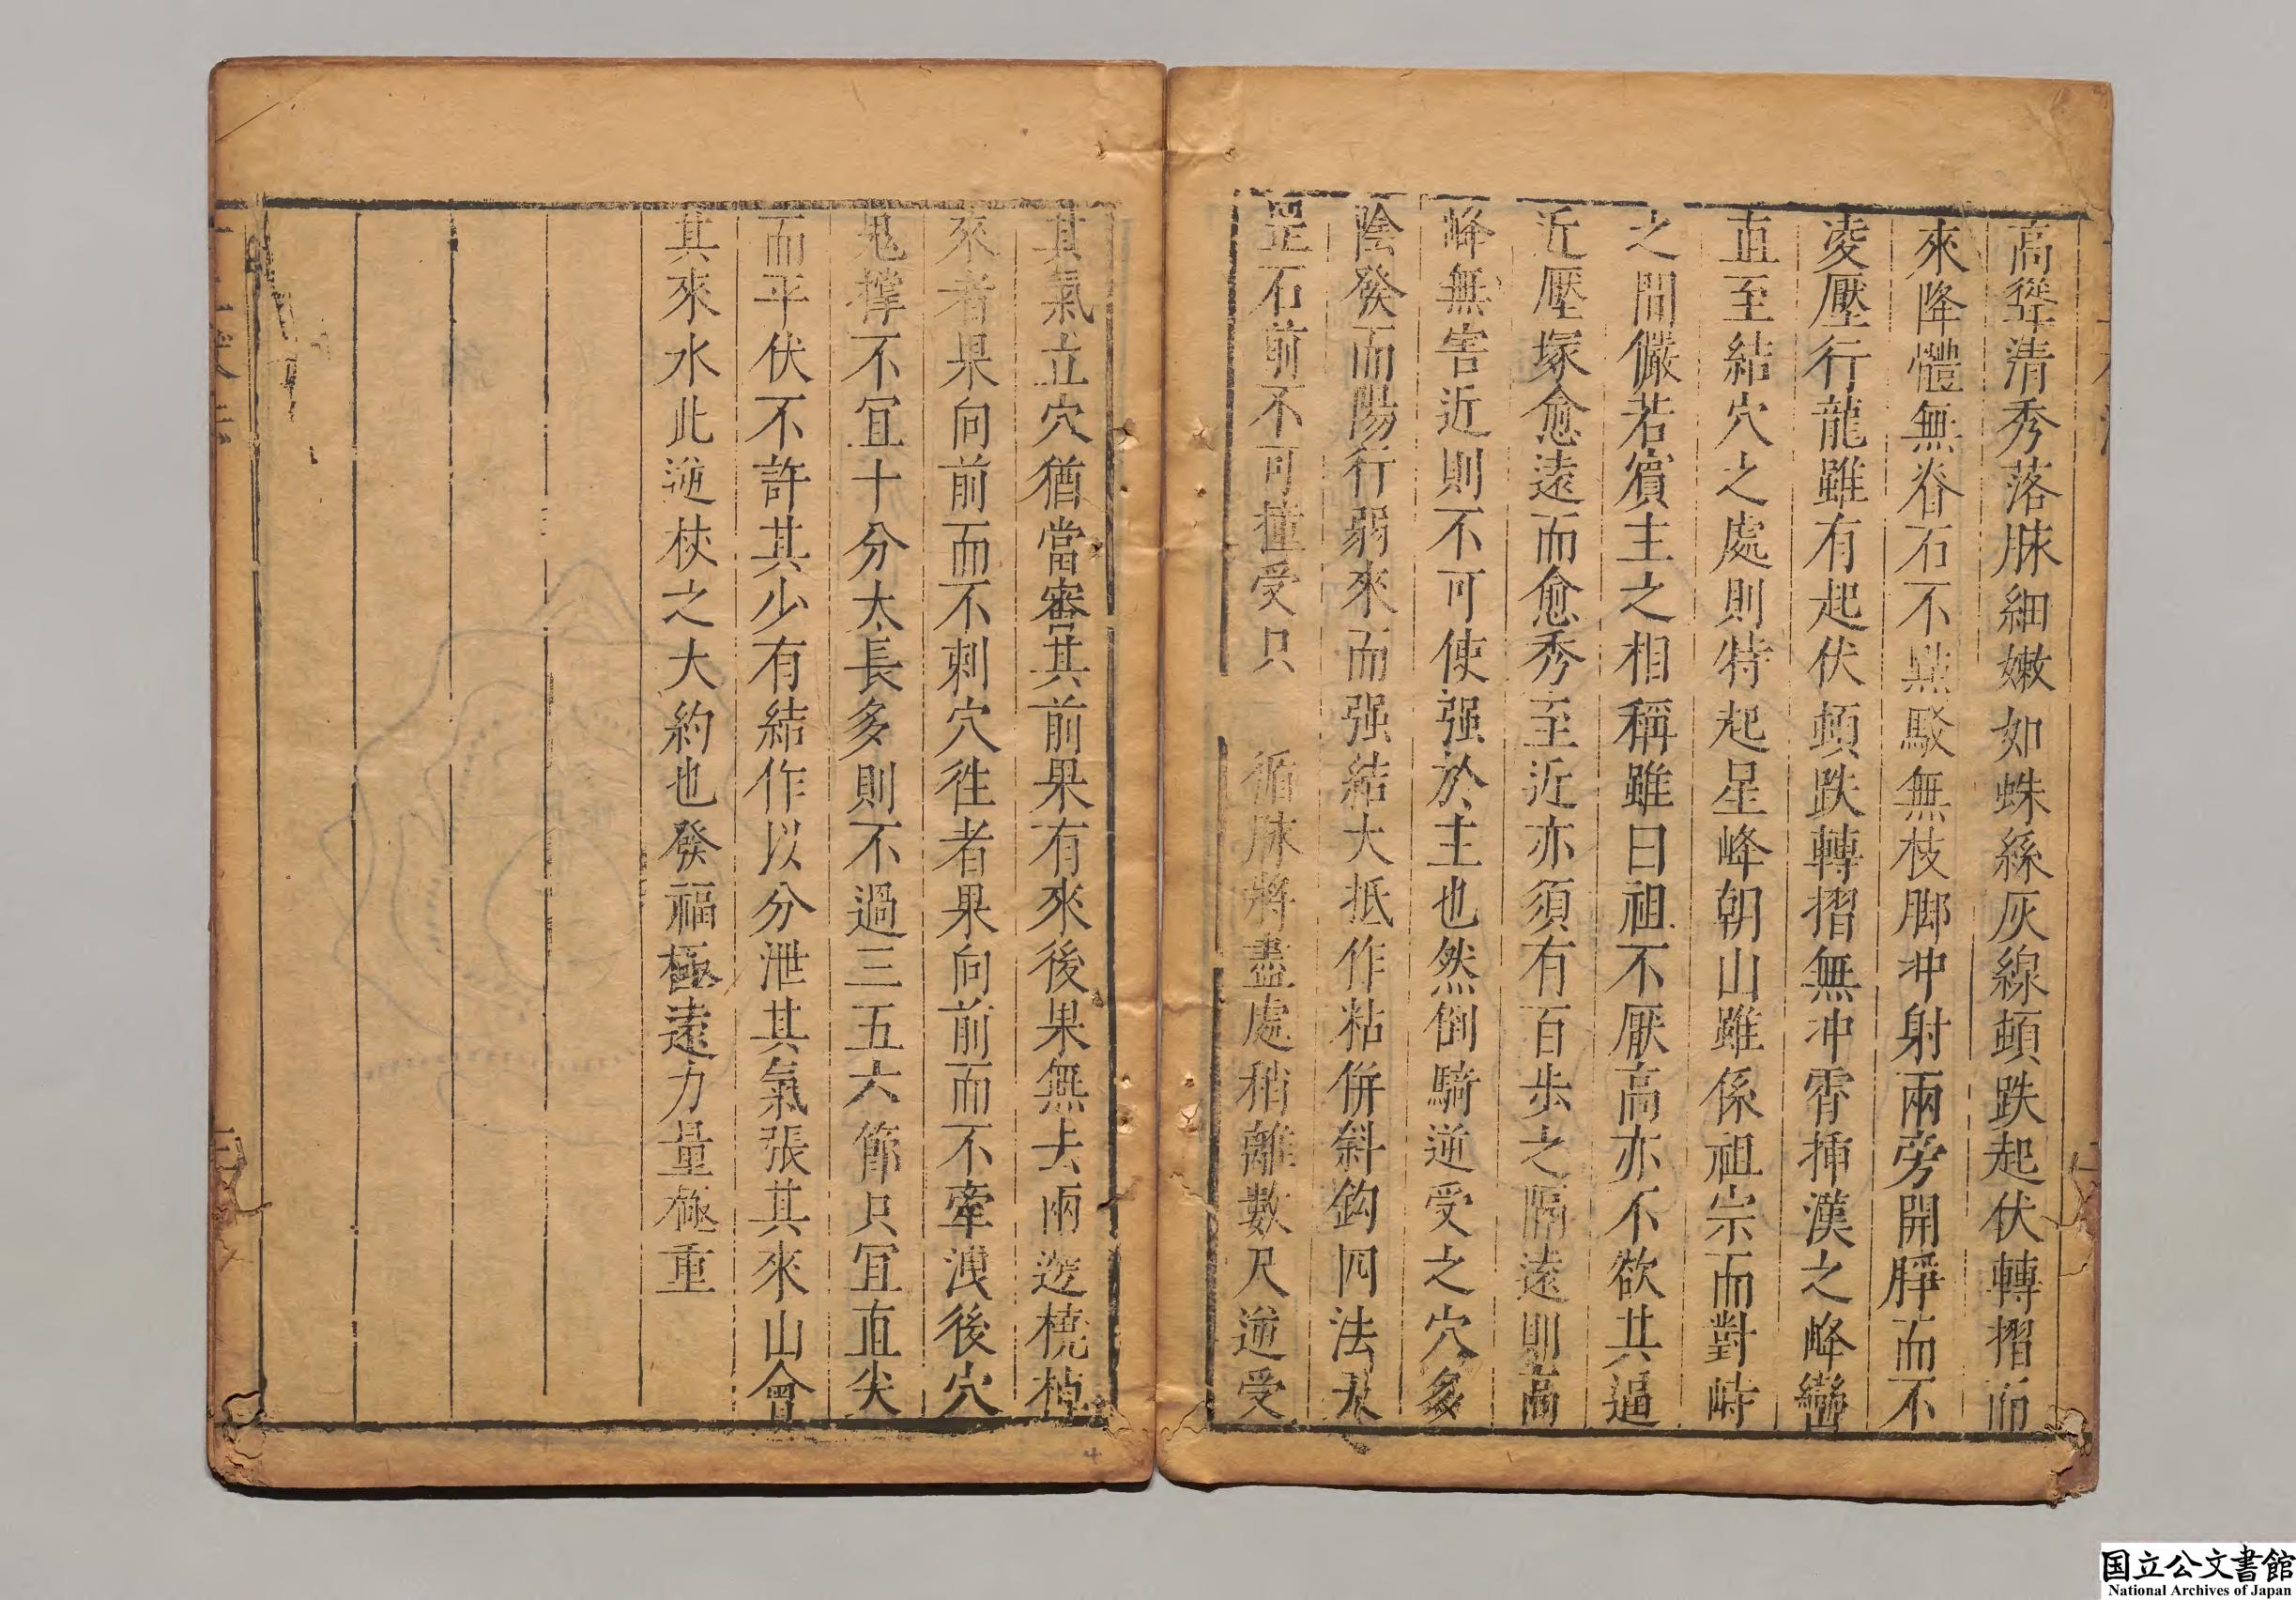 高聳清秀落脉細嫩如蛛絲灰線頓跌起伏轉摺而
來降體無脊石不無駁無枝脚冲射兩旁開睜而不
凌壓行龍雖有起伏頓跌轉摺無冲霄揷漢之峰巒
直至結穴之處則特起星峰朝山雖係祖宗而對峙
之間儼若賓主之相稱雖曰祖不厭高亦不欲其逼
近壓塚愈遠而愈秀至近亦須有百步之隔遠則高
峰無害近則不可使强於主也然倒騎逆受之穴多
陰發而陽行弱來而强結大抵作粘倂斜鈎四法
石前不可撞受只 循脉將盡處稍離數尺逆受
其氣立穴猶當審其前果有來後果無去兩邊橈棹
來者果向前而不刺穴徃者果向前而不牽洩後穴
鬼撑不宜十分太長多則不過三五六節只宜直尖
而平伏不許其少有結作以分泄其氣張其來山會
其來水此逆杖之大約也發福極遠力量極重
国立公文書館
National Archives of Japan